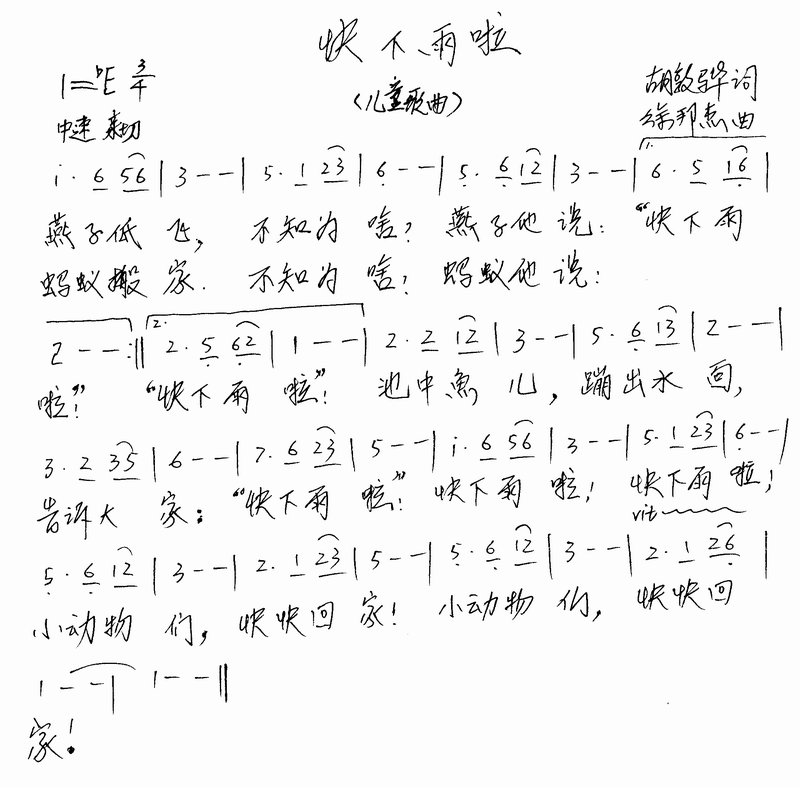 快下雨啦
1=♭E 3/4
(儿童歌曲)
胡敦骅词
中速 亲切
徐邦杰曲
i· 6 56 | 3 - - | 5· 1 23 | 6 - - | 5· 6 12 | 3 - - | 1. 6· 5 16 |
燕子低飞, 不知为啥? 燕子他说: “快下雨
蚂蚁搬家. 不知为啥? 蚂蚁他说:
2 - - :‖ 2. 2· 5 62 | 1 - - | 2· 2 12 | 3 - - | 5· 6 13 | 2 - - |
啦”! “快下雨啦”! 池中鱼儿, 蹦出水面,
3· 2 35 | 6 - - | 7· 6 23 | 5 - - | i· 6 56 | 3 - - | 5· 1 23 | 6 - - |
告诉大家: “快下雨啦”! 快下雨啦! 快下雨啦!
rit
5· 6 12 | 3 - - | 2· 1 23 | 5 - - | 5· 6 12 | 3 - - | 2· 1 26 |
小动物们, 快快回家! 小动物们, 快快回
1 - - | 1 - - ‖
家!